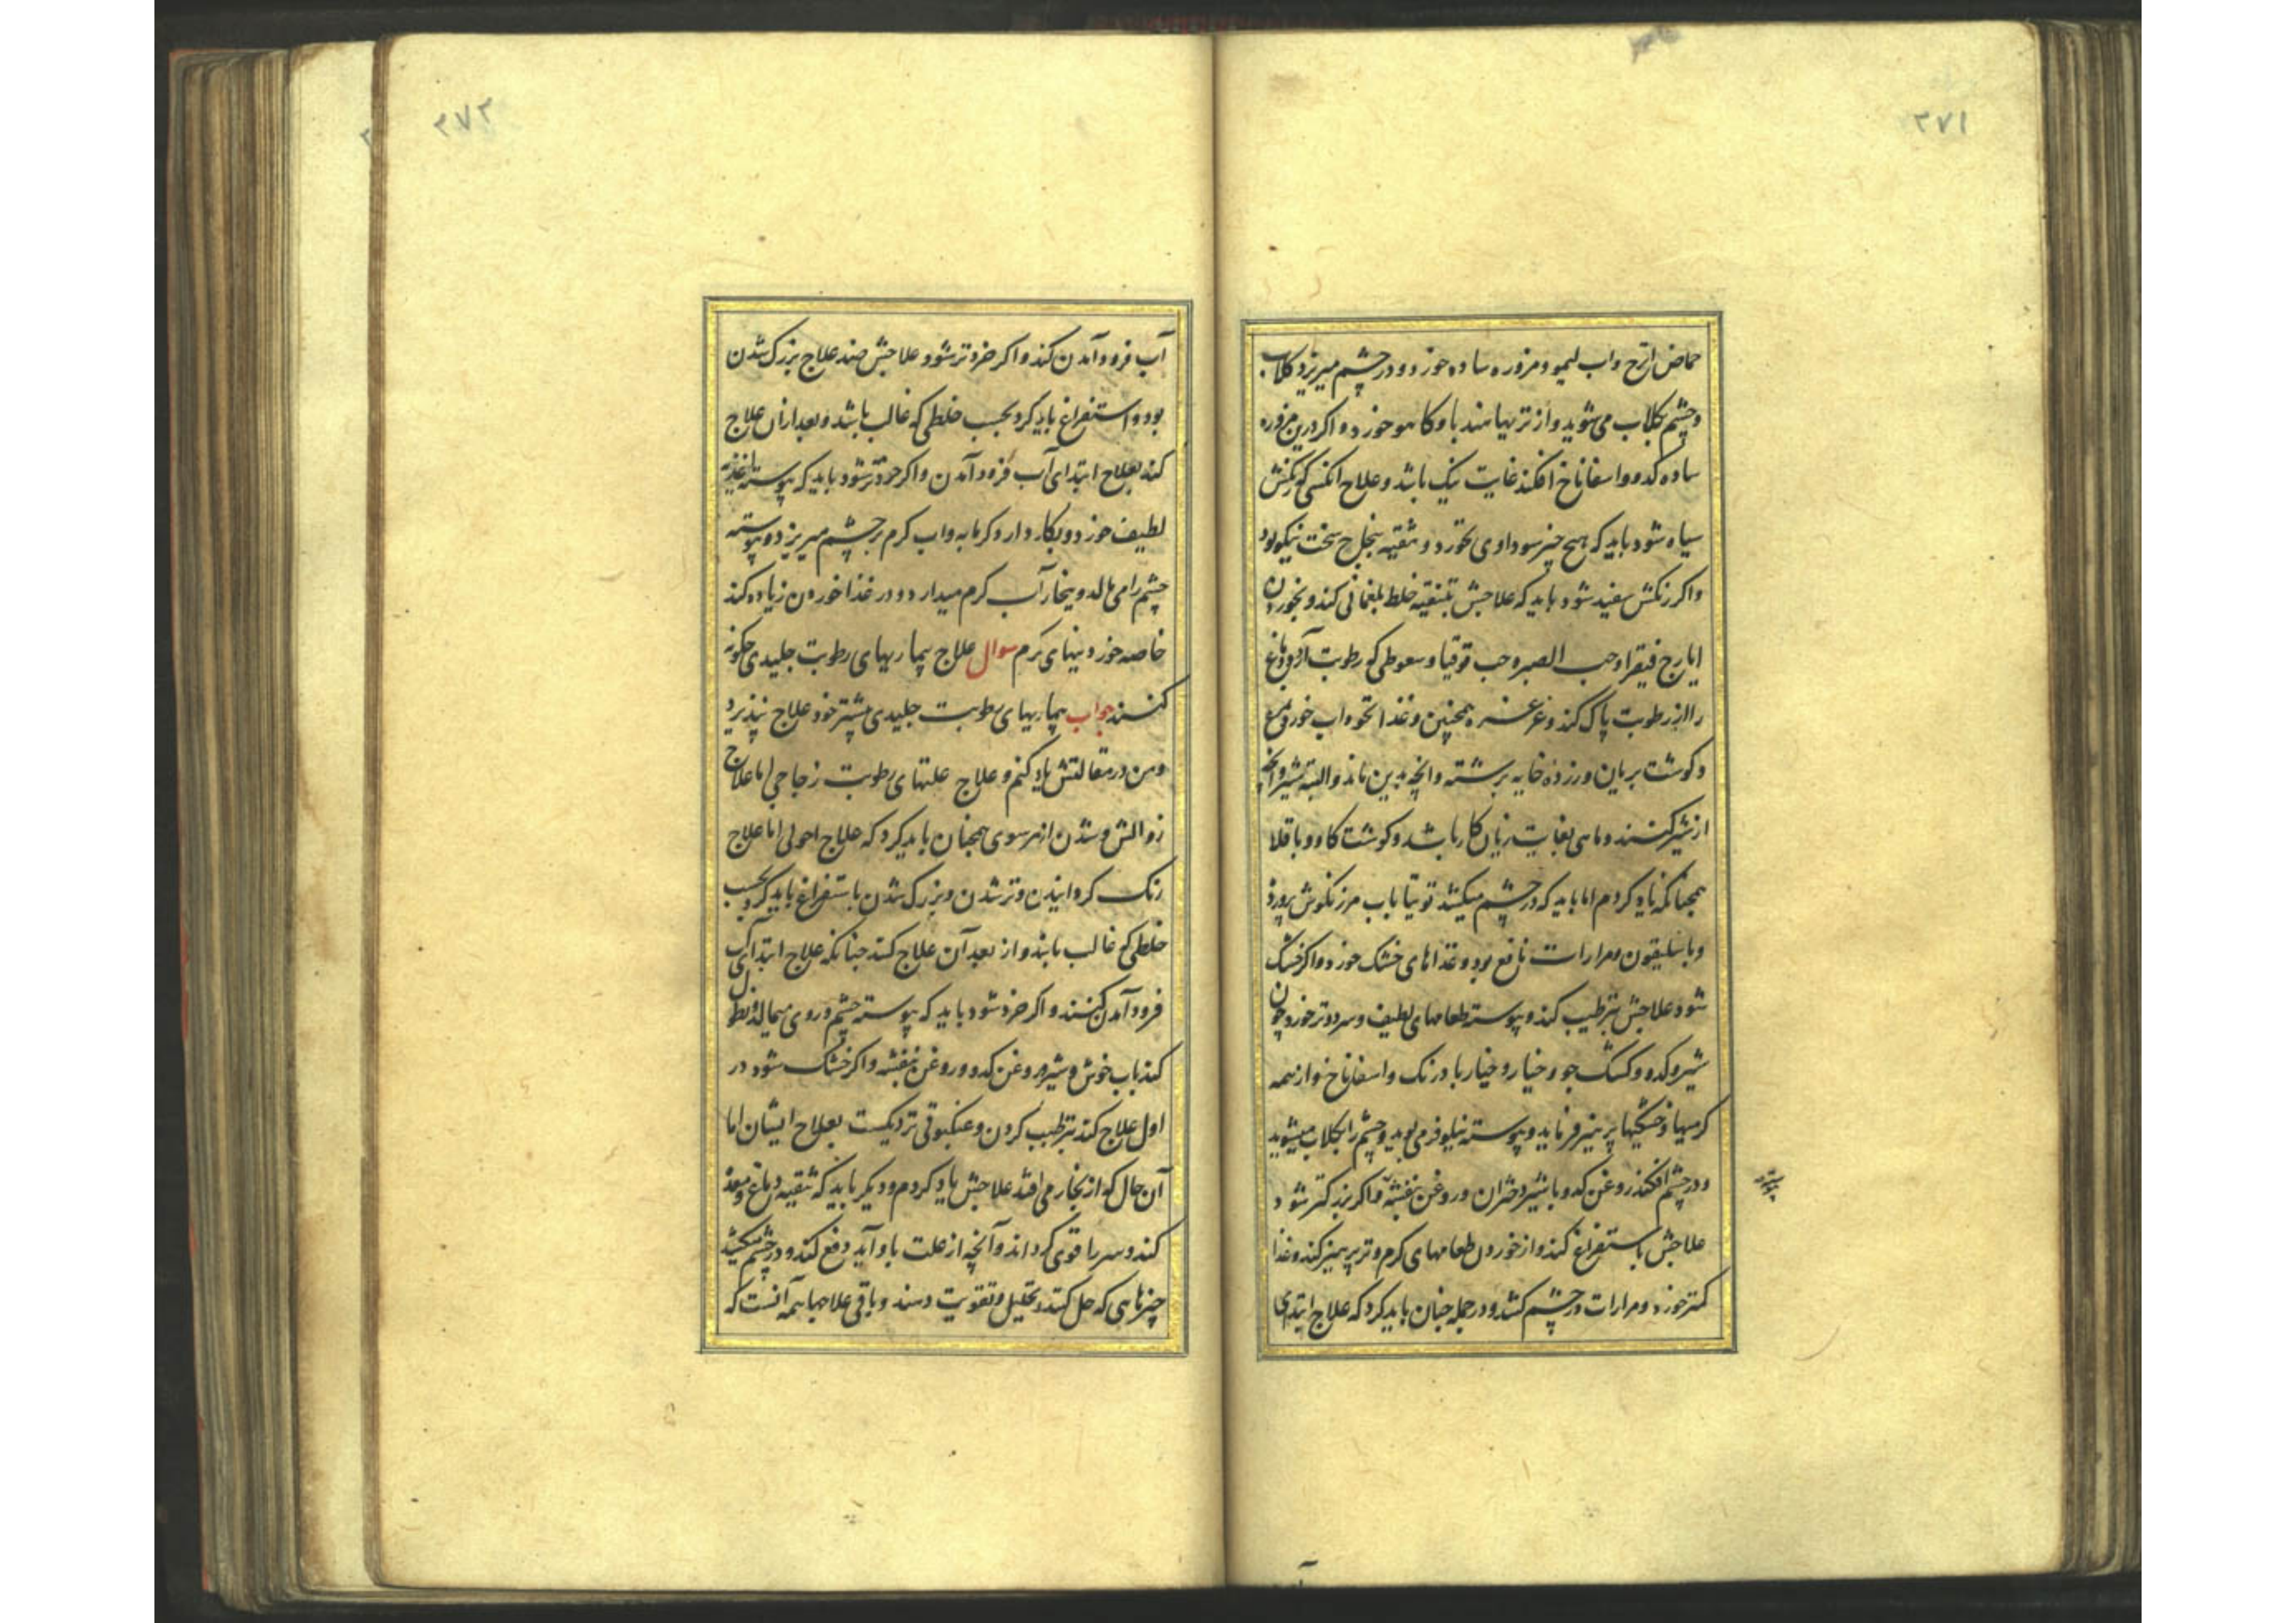 ۳۷۱
حماض اترج واب لیمو و مزوره ساده خورد و در چشم میریزد کلاب
و چشم بکلاب می شوید و از تریها هند با و کاهو خورد و اکر درین مزوره
ساده کدو و اسفاناخ افکند غایت نیک باشد و علاج انکسی که رنکش
سیاه شود باید که هیچ چیز سوداوی نخورد و تنقیه سخت نیکو بود
واکر رنکش سفید شود باید که علاجش بتنقیه خلط بلغمانی کند و بخوردن
ایارج فیقرا و حب الصبر و حب قوقیا و سعوطی که رطوبت آرد و دماغ
را از رطوبت پاک کند و غرغره همچنین و غذا نخوداب خورد
و کوشت بریان و زرده خایه برشته وانچه بدین ماند و البته شیر وانچه
از شیر کنند و ماهی بغایت زیان کار باشد و کوشت کاو و باقلا
همچنانکه یاد کردم اما باید که در چشم میکشد توتیا باب مرزنکوش پرورد
وباسلیقون و مرارات نافع بود و غذاهای خشک خورد واکر خشک
شود علاجش بترطیب کند و پیوسته طعامهای لطیف و سرد و تر خورد چون
شیر و کدو و کشک جو و خیار و خیار بادرنک و اسفاناخ و از همه
کرمیها و خشکیها پرهیز فرماید و پیوسته نیلوفر می بوید و چشم را بکلاب میشوید
و در چشم افکند روغن کدو با شیر دختران و روغن بنفشه و اکر بزرکتر شود
علاجش باستفراغ کند و از خوردن طعامهای کرم و تر پرهیز کند و غذا
کمتر خورد و مرارات در چشم کشد و در جمله چنان باید کرد که علاج ابتدی
۳۷۲
آب فرود آمدن کند و اکر خردتر شود علاجش ضد علاج بزرک شدن
بود و استفراغ باید کرد بحسب خلطی که غالب باشد و بعد ازان علاج
کند بعلاج ابتدای آب فرود آمدن واکر خردتر شود باید که پیوسته اغذیه
لطیف خورد و بکار دارد کرمابه واب کرم بر چشم میریزد و پیوسته
چشم را می مالد و ببخار آب کرم میدارد و در غذا خوردن زیاده کند
خاصه خوردنیهای کرم سوال علاج بیماریهای رطوبت جلیدی چکونه
کنند جواب بیماریهای رطوبت جلیدی بیشتر خود علاج نپذیرد
ومن در مقالتش یاد کنم و علاج علتهای رطوبت زجاجی اما علاج
زوالش و شدن از هر سوی همچنان باید کرد که علاج احولی اما علاج
رنک کردانیدن و تر شدن و بزرک شدن باستفراغ باید کرد بحسب
خلطی که غالب باشد و از بعد آن علاج کنند چنانکه علاج ابتدای آب
فرود آمدن کنند و اکر خرد شود باید که پیوسته چشم و روی میمالد و نطول
کند باب خوش و شیر و روغن کدو و روغن بنفشه و اکر خشک شود در
اول علاج کند بترطیب کردن و عنکبوتی نزدیکست بعلاج ایشان اما
آن حال که از بخار می افتد علاجش یاد کردم و دیکر باید که تنقیه دماغ و معده
کند و سر را قوی کرداند و آنچه از علت باو آید دفع کند و در چشم میکشد
چیزهایی که حل کند و تحلیل و تقویت دهند و باقی علاجها همه آنست که